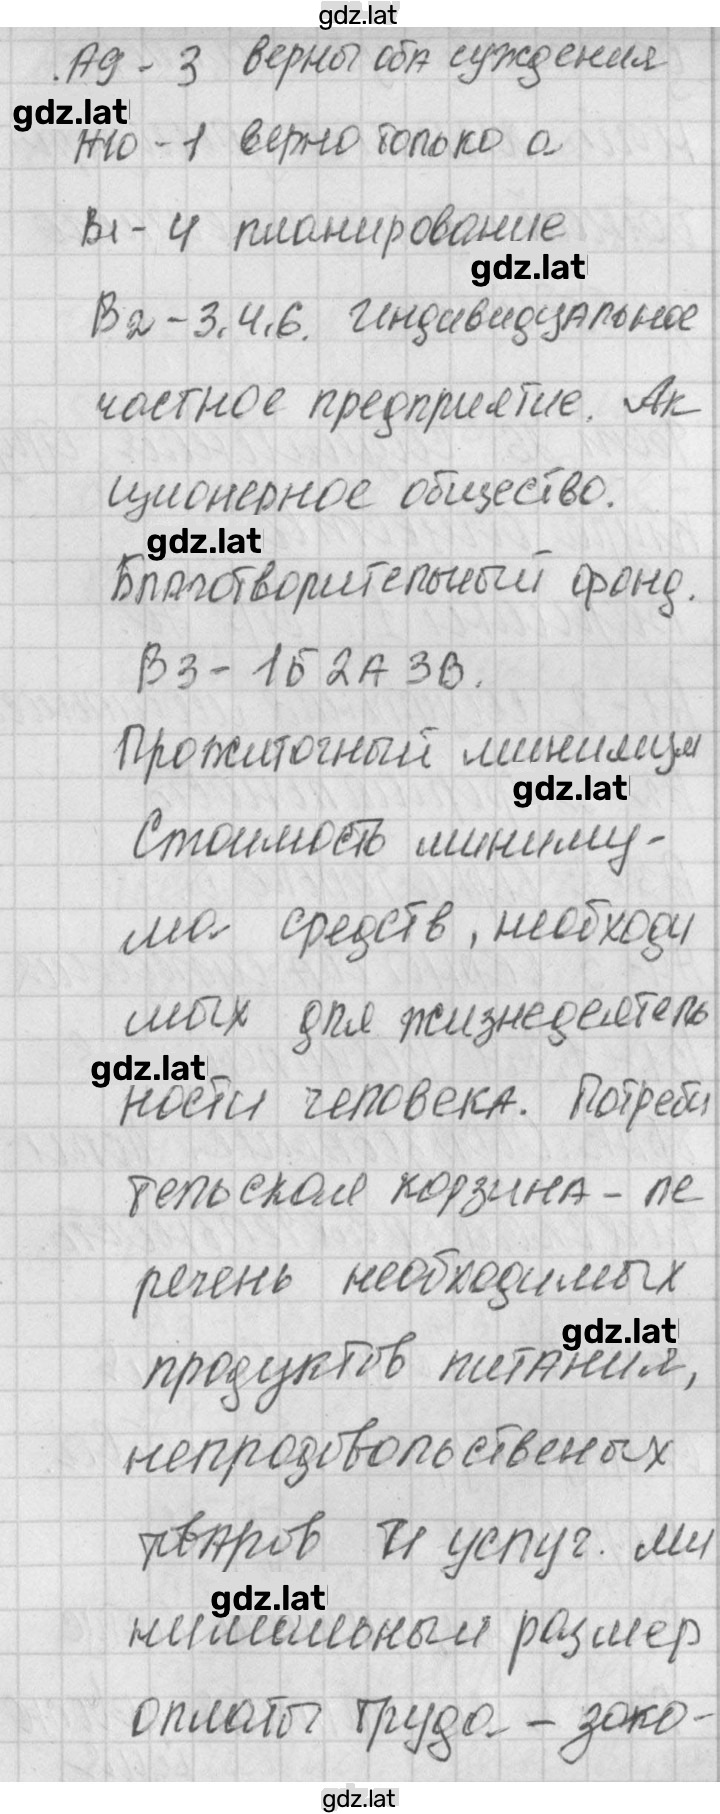 gdz.lat
.А9 - 3 верны оба суждения
gdz.lat
А10 - 1 верно только а
В1 - 4 планирование
gdz.lat
В2 - 3.4.6. Индивидуальное
частное предприятие. Ак
ционерное общество.
gdz.lat
Благотворительный фонд.
В3 - 1Б 2А 3В.
Прожиточный минимум
gdz.lat
Стоимость миниму-
ма средств, необходи
мых для жизнедеятель
gdz.lat
ности человека. Потреби
тельская корзина - пе
речень необходимых
gdz.lat
продуктов питания,
непродовольственых
тваров и услуг. Ми
gdz.lat
нимальный размер
оплаты труда - зако-
gdz.lat